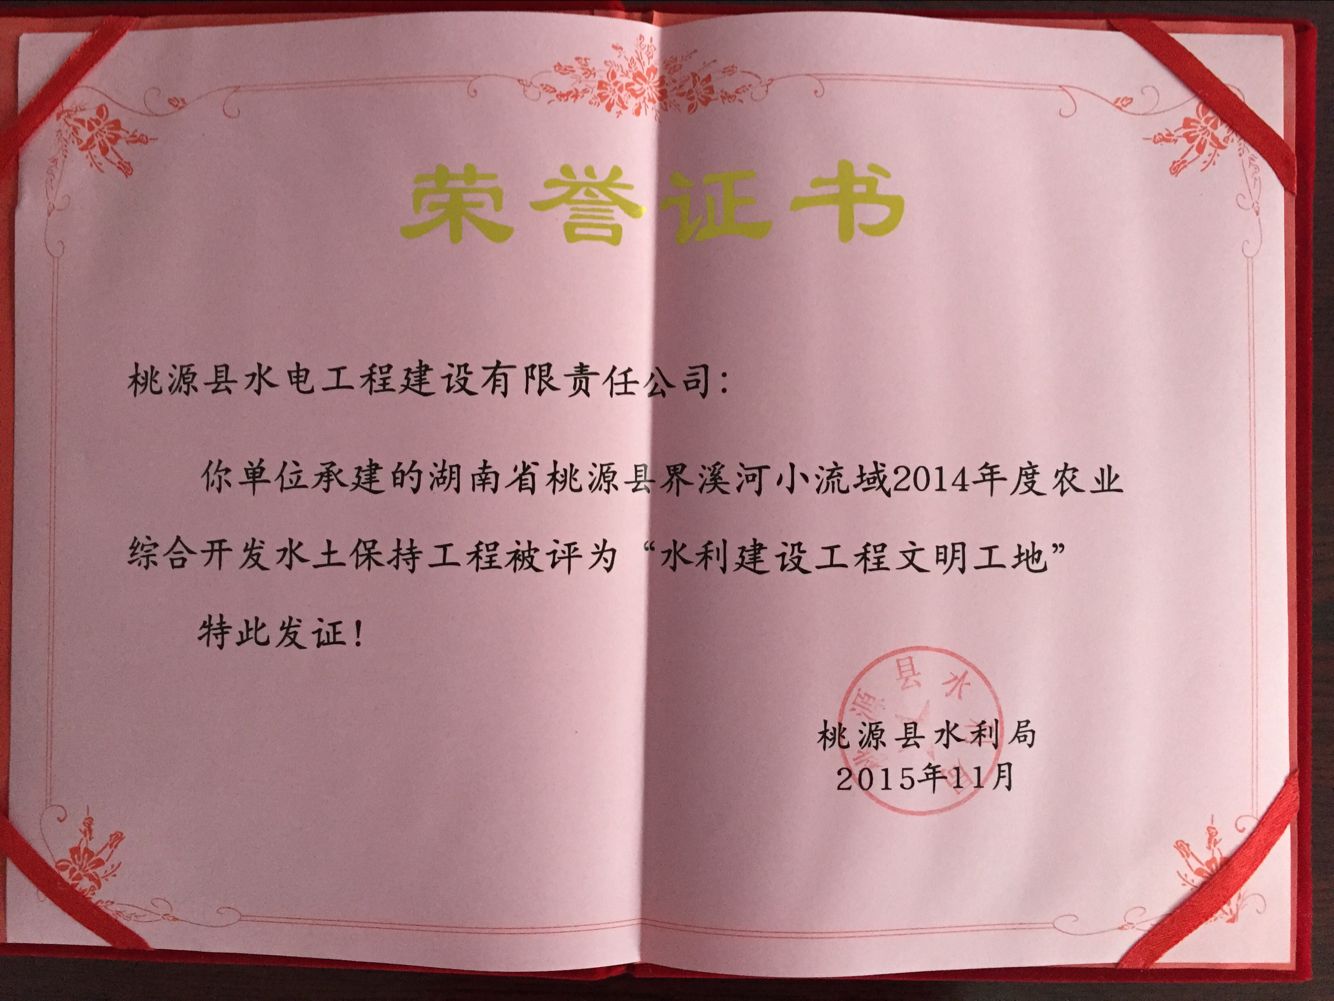 荣誉证书
桃源县水电工程建设有限责任公司：
你单位承建的湖南省桃源县界溪河小流域2014年度农业
综合开发水土保持工程被评为“水利建设工程文明工地”
特此发证！
桃源县水利局
2015年11月
桃源县水利局